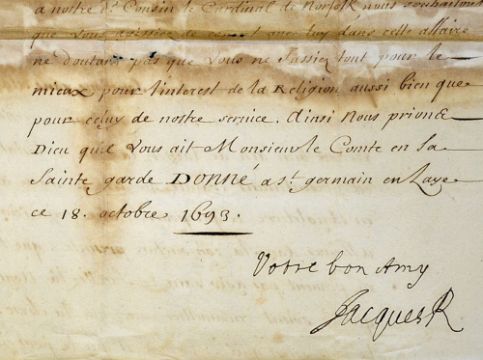 a nostre dt. Cousin le Cardinal de Norfolk nous souhaitons
que vous de que luy dans cette affaire
ne doutant pas que vous ne fassiez tout pour le
mieux pour l'interest de la Religion aussi bien que
pour celuy de nostre service. Ainsi Nous prions
Dieu quil vous ait Monsieur le Comte en sa
Sainte garde DONNÉ a st. germain en Laye
ce 18. octobre 1693.
Votre bon Amy
Jacques R